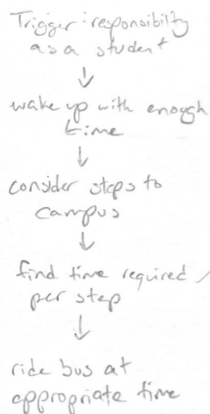 Trigger: responsibility
as a student
↓
wake up with enough
time
↓
consider steps to
campus
↓
find time required /
per step
↓
ride bus at
appropriate time